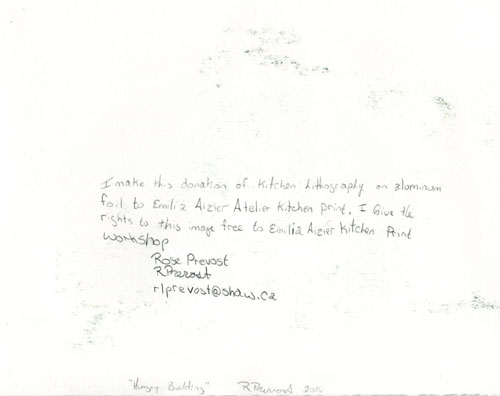 I make this donation of Kitchen Lithography on aluminum
foil to Emilia Aizier Atelier Kitchen print. I Give the
rights to this image free to Emilia Aizier Kitchen Print
Workshop
Rose Prevost
RPrevost
rlprevost@shaw.ca
"Hungry Building" RPrevost